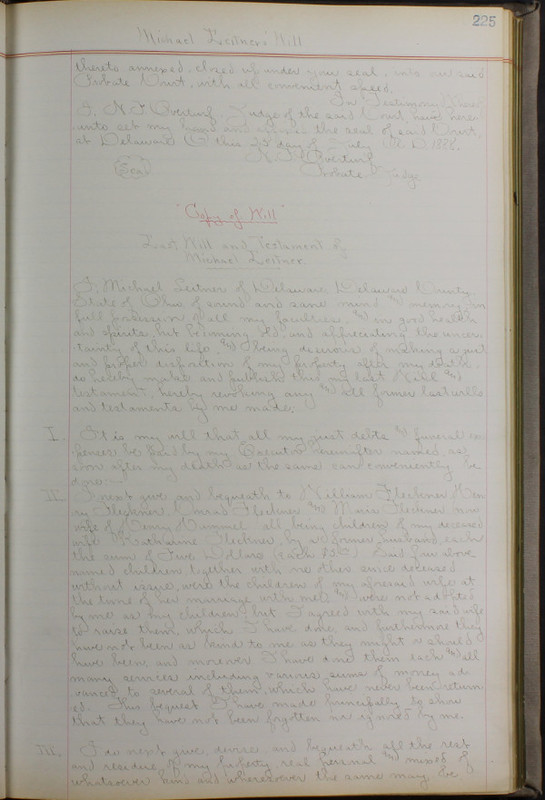 225
Michael Leitner's Will
thereto annexed, closed up under your seal, into our said
Probate Court, with all convenient speed.
In Testimony
I, N. F. Overturf Judge of the said Court, have here
unto set my hand and the seal of said Court,
at Delaware O. this 28 day of July A. D. 1888.
N. F. Overturf
Seal
Probate Judge
"Copy of Will"
Last Will and Testament of
Michael Leitner.
I, Michael Leitner of Delaware, Delaware County
State of Ohio, of sound and sane mind and memory in
full possession of all my faculties, and in good health
and spirits, but becoming old, and appreciating the uncer
tainty of this life, and being desirous of making a just
and proper disposition of my property after my death
do hereby make and publish this my last Will and
testament, hereby revoking any and all former last wills
and testaments by me made.
I. It is my will that all my just debts and funeral ex
penses be paid by my Executor hereinafter named, as
soon after my death as the same can conveniently be
done.
II. I next give and bequeath to William Fleckner Hen
ry Fleckner, Conrad Fleckner and Marie Fleckner now
wife of Henry Hummel all being children of my deceased
wife Katharine Fleckner, by a former husband, each
the sum of Five Dollars (each $5.00) Said four above
named children together with no other since deceased
without issue, were the children of my aforesaid wife at
the time of her marriage with me, and were not adopted
by me as my children, but I agreed with my said wife
to raise them, which I have done, and furthermore they
have not been as kind to me as they might and should
have been and moreover I have done them each and all
many services including various sums of money ad
vanced to several of them, which have never been return
ed. This bequest I have made principally to show
that they have not been forgotten nor ignored by me.
III. I do next give, devise and bequeath all the rest
and residue of my property real personal and mixed of
whatsoever kind and wheresoever the same may be